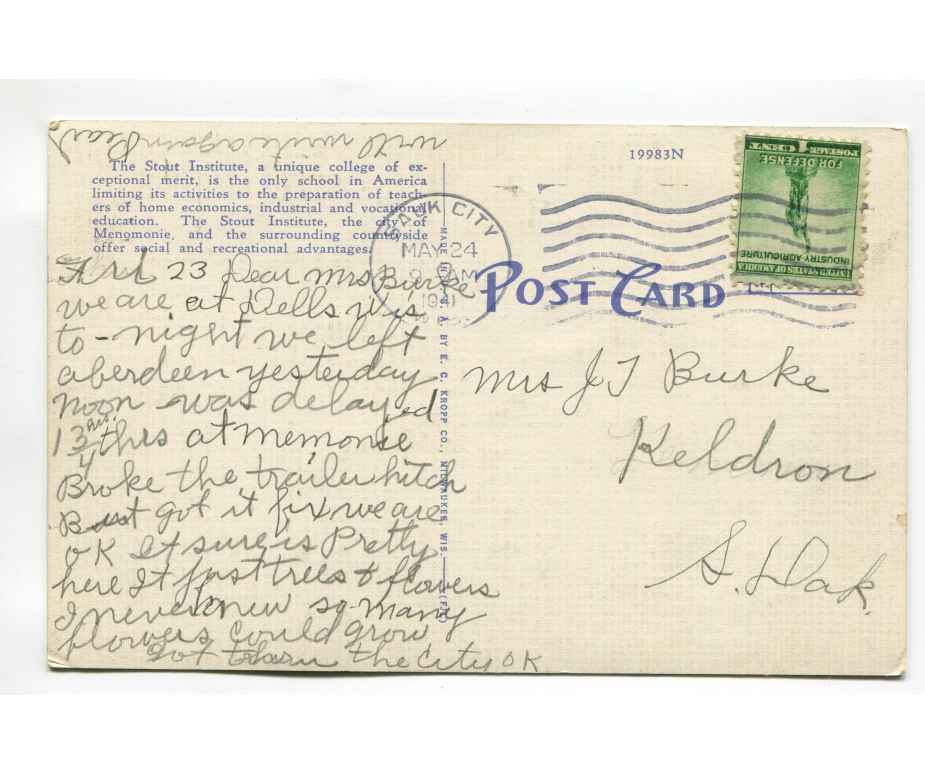 will write again Pearl
The Stout Institute, a unique college of ex-
ceptional merit, is the only school in America
limiting its activities to the preparation of teach-
ers of home economics, industrial and vocational
education. The Stout Institute, the city of
Mengmonie, and the surrounding countryside
offer social and recreational advantages.
23 Dear Mrs Burke
we are at Dells Wis
to-night we left
aberdeen yesterday
noon was delayed
1 3/4 hrs at memonie
Broke the trailer hitch
But got it fix we are
OK It sure is Pretty
here It just trees & flowers
I never knew so many
flowers could grow
Got the city OK
MADE IN U. S. A. BY E. C. KROPP CO., MILWAUKEE, WIS.
19983N
SAUK CITY
MAY 24
9 AM
1941
WIS.
POST CARD
UNITED STATES OF AMERICA
INDUSTRY AGRICULTURE
FOR DEFENSE
POSTAGE 1 CENT
Mrs J T Burke
Keldron
S. Dak.